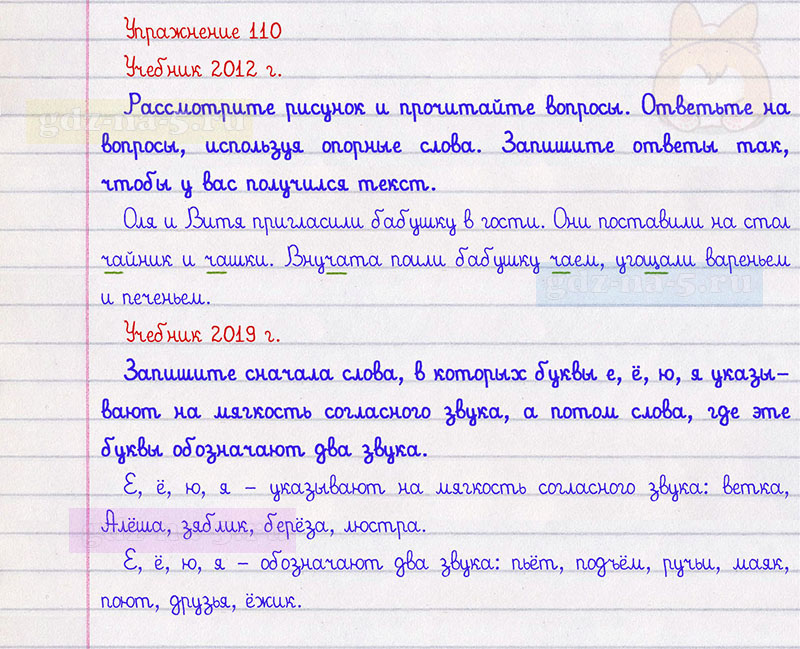 Упражнение 110
Учебник 2012 г.
Рассмотрите рисунок и прочитайте вопросы. Ответьте на
вопросы, используя опорные слова. Запишите ответы так,
чтобы у вас получился текст.
Оля и Витя пригласили бабушку в гости. Они поставили на стол
чайник и чашки. Внучата поили бабушку чаем, угощали вареньем
и печеньем.
Учебник 2019 г.
Запишите сначала слова, в которых буквы е, ё, ю, я указы-
вают на мягкость согласного звука, а потом слова, где эте
буквы обозначают два звука.
Е, ё, ю, я – указывают на мягкость согласного звука: ветка,
Алёша, зяблик, берёза, люстра.
Е, ё, ю, я – обозначают два звука: пьёт, подъём, ручьи, маяк,
поют, друзья, ёжик.
gdz-na-5.ru
gdz-na-5.ru